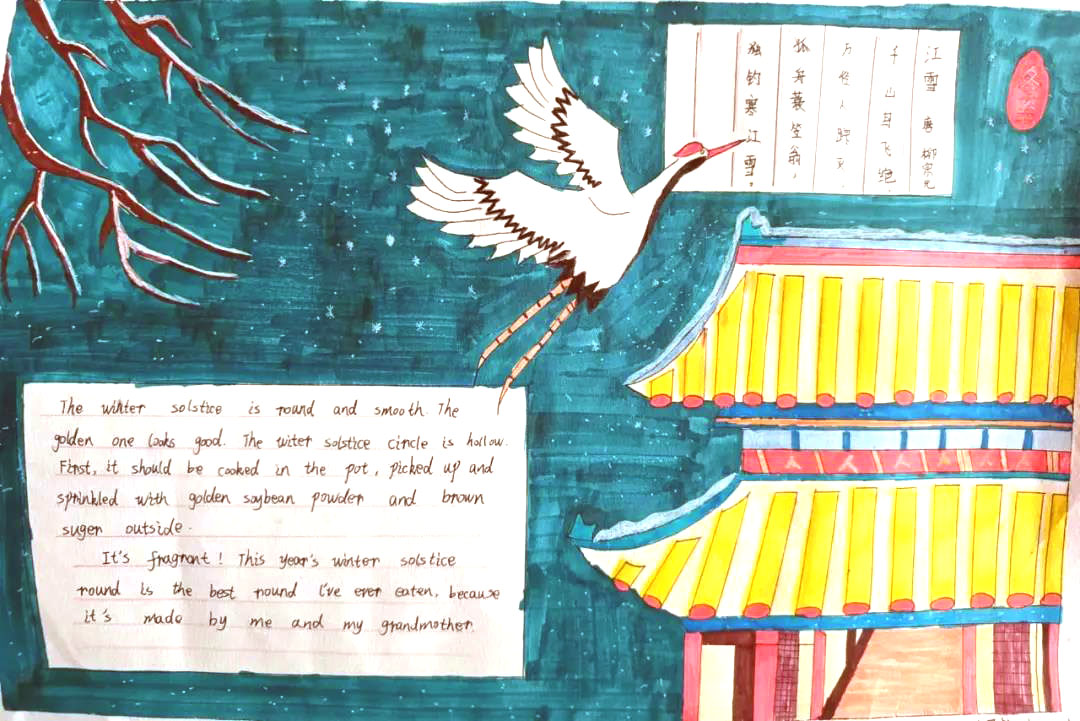 江雪 唐 柳宗元
千山鸟飞绝,
万径人踪灭.
孤舟蓑笠翁,
独钓寒江雪。
冬至
The winter solstice is round and smooth. The
golden one looks good. The witer solstice circle is hollow.
First, it should be cooked in the pot, picked up and
sprinkled with golden soybean powder and brown
suger outside.
It's fragrant! This year's winter solstice
round is the best round I've ever eaten, because
it's made by me and my grandmother.